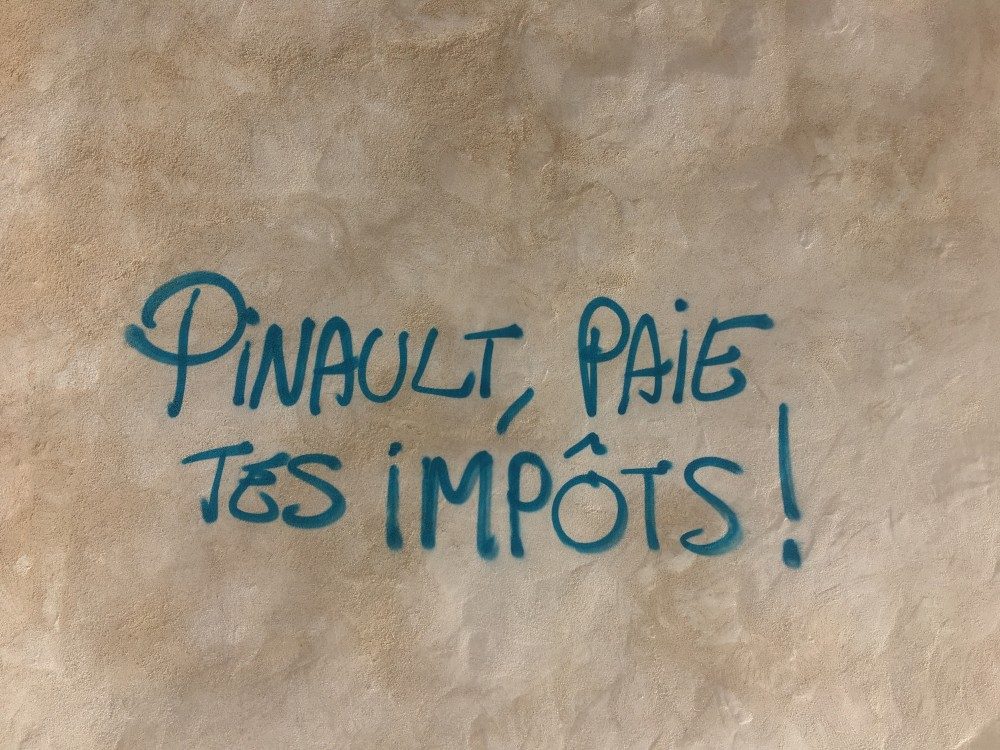 PINAULT, PAIE
TES IMPÔTS !